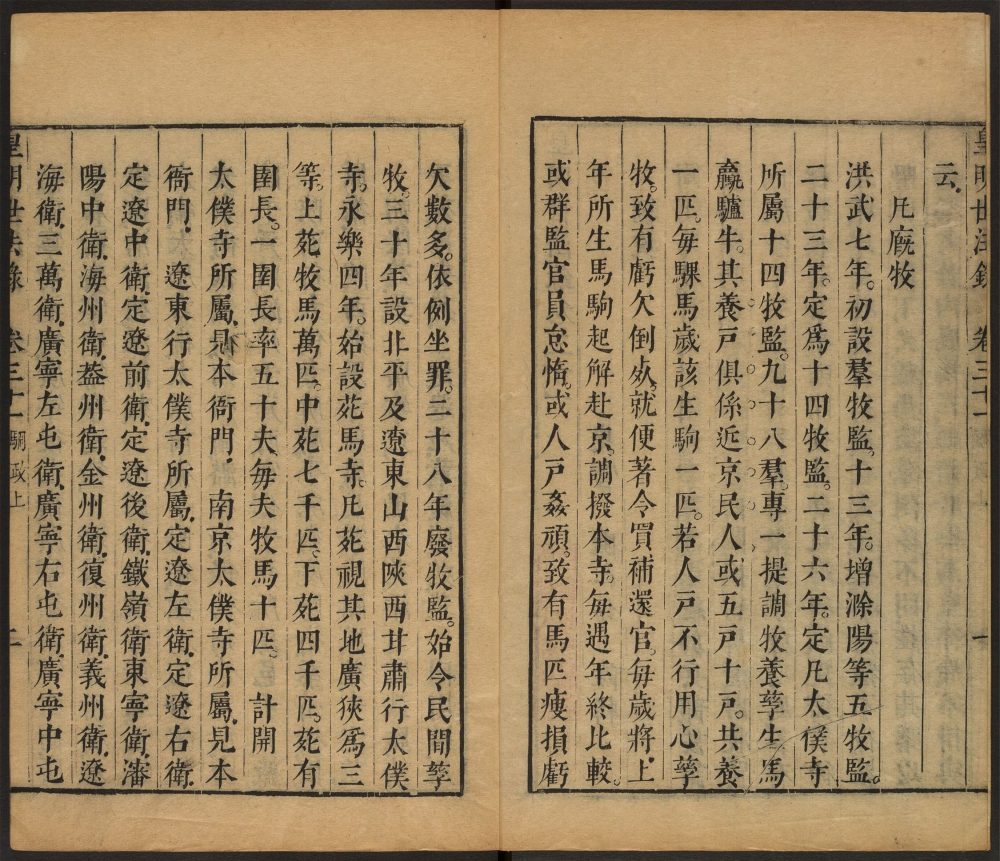 皇明世法錄 卷三十一
云
凡廐牧
洪武七年。初設羣牧監。十三年。增滁陽等五牧監。
二十三年。定爲十四牧監。二十六年。定凡太僕寺
所屬十四牧監。九十八羣。專一提調牧養孳生馬
驘驢牛。其養戶俱係近京民人。或五戶十戶。共養
一匹。每騍馬歲該生駒一匹。若人戶不行用心孳
牧。致有虧欠倒死。就便著令買補還官。每歲將上
年所生馬駒起解赴京。調撥本寺。每遇年終比較。
或群監官員怠惰。或人戶姦頑。致有馬匹瘦損虧
欠數多。依例坐罪。二十八年廢牧監。始令民間孳
牧。三十年設北平及遼東山西陝西甘肅行太僕
寺。永樂四年。始設苑馬寺。凡苑視其地廣狹爲三
等。上苑牧馬萬匹。中苑七千匹。下苑四千匹。苑有
圉長。一圉長率五十夫每夫牧馬十匹。 計開
太僕寺所屬。見本衙門。 南京太僕寺所屬。見本
衙門。 遼東行太僕寺所屬。定遼左衛。定遼右衛。
定遼中衛。定遼前衛。定遼後衛。鐵嶺衛東寧衛。瀋
陽中衛。海州衛。葢州衛。金州衛。復州衛。義州衛。遼
海衛。三萬衛。廣寧左屯衛。廣寧右屯衛。廣寧中屯
皇明世法錄 卷三十一 駉政上 二